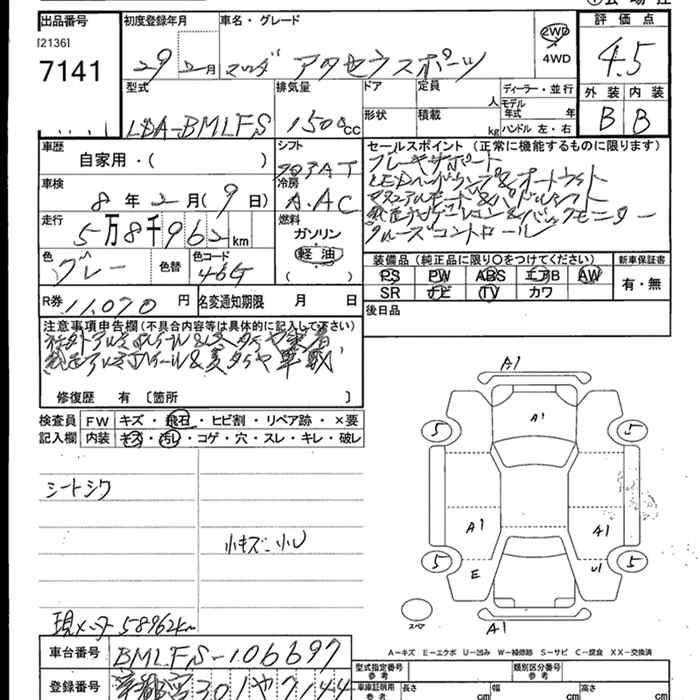 出品番号 初度登録年月 車名・グレード 評価点
[2136]
7141
29 2月 マツダ アクセラスポーツ
2WD
4WD
4.5
型式 排気量 ドア 定員 人 ディーラー・並行
モデル年式 年
形状 積載 kg ハンドル 左・右
外装 内装
B B
LDA-BMLFS 1500cc
車歴 自家用・( )
シフト フロアAT
セールスポイント(正常に機能するものに限ります)
ブレーキサポート
LEDヘッドランプ&オートライト
マニュアルモード&パドルシフト
純正ナビゲーション&バックモニター
クルーズコントロール
車検 8年 2月(9日)
冷房 A.AC
走行 5万8千962km
燃料 ガソリン
軽油
( )
色 グレー 色替 色コード 46G
装備品(純正品に限り○をつけてください) 新車保証書
PS PW ABS エアB AW
SR ナビ TV カワ
有・無
R券 11,070円 名変通知期限 月 日
後日品
注意事項申告欄(不具合内容等は具体的に記入して下さい)
社外アルミホイール&冬タイヤ装着
純正アルミホイール&夏タイヤ車載
修復歴 有 〔箇所 〕
検査員 FW キズ・飛石・ヒビ割・リペア跡・×要
記入欄 内装 キズ・汚レ・コゲ・穴・スレ・キレ・破レ
シートシワ
小キズ:小U
現メーター58962km
A1
A1
5 5
A1 A1
E U1
5 5
スペア
A1
A-キズ E-エクボ U-凹み W-補修跡 S-サビ C-腐食 XX-交換済
車台番号 BMLFS-106697
型式指定番号 参考 類別区分番号 参考
登録番号 宇都宮301や7144
車庫証明用 参考 長さ cm 幅 cm 高さ cm